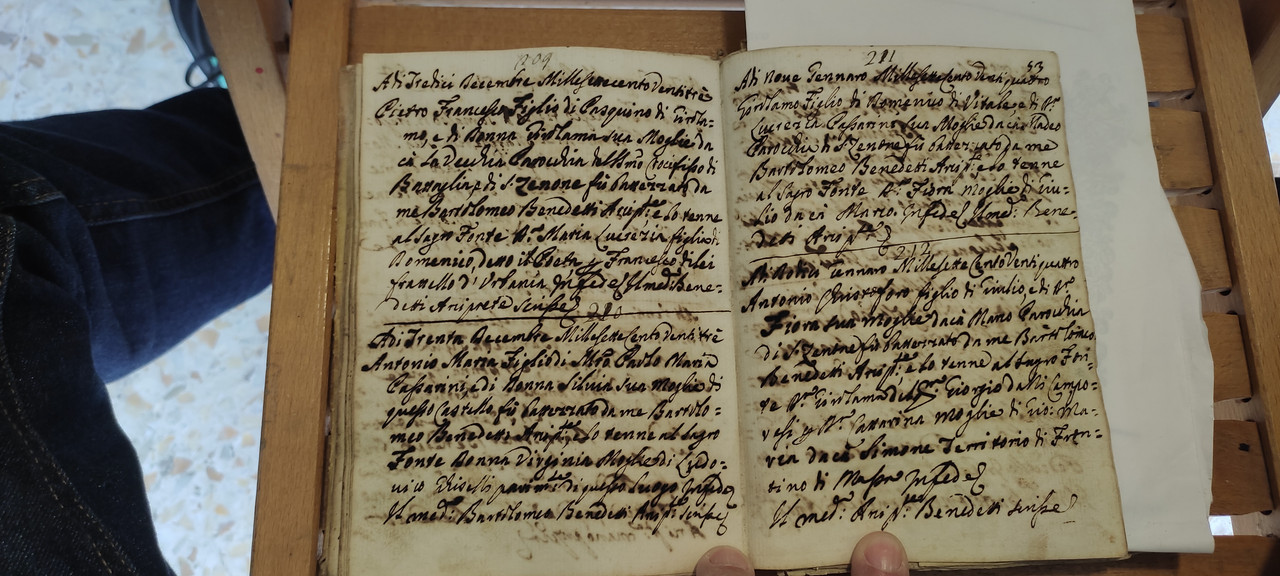 209
Adi Tredici Decembre Millesettecentoventitrè
Pietro Francesco Figlio di Pasquino di Girola-
mo, e di Donna Girolama sua Moglie da
cà la Vecchia Parochia del SSmo Crocifisso di
Battaglia, e di S. Zenone fù battezzato da
me Bartolomeo Benedetti Arip.te e lo tenne
al sagro Fonte D.a Maria Lucrezia figlia di
Domenico, detto il Poeta, e Francesco di lei
fratello d'Urbania. In fede Il med. Bene-
detti Ariprete scrisse
210
Adi Trenta Decembre Millesettecentoventitrè
Antonio Maria Figlio di Paolo Maria
Passarini, e di Donna Silvia sua Moglie di
questo Castello fù battezzato da me Bartolo-
meo Benedetti Arip.te e lo tenne al sagro
Fonte Donna Virginia Moglie di Ludo-
vico parim.te di questo luogo In fede
Il med. Bartolomeo Benedetti Arip.te scrisse
211
53
Adi nove Gennaro Millesettecentoventiquattro
Girolamo Figlio di Domenico di Vitale, e di D.a
Lucrezia Passarini sua Moglie da cà Tadeo
Parochia di S. Zenone fù battezzato da me
Bartolomeo Benedetti Arip.te e lo tenne
al sagro Fonte D.a Fiora Moglie di Giu-
lio da cà Marco. In fede Il med. Bene-
detti Arip.te
212
Adi Gennaro Millesettecentoventiquattro
Antonio figlio di Giulio, e di D.a
Fiora sua moglie da cà Marco Parochia
di S. Zenone fù battezzato da me Bartolomeo
Benedetti Arip.te e lo tenne al sagro Fon-
te D.a Girolama del Giorgio dalli Campo-
resi, e D.a Cattarina moglie di Gio: Ma-
ria da cà Simone Territorio di Fron-
tino di Massa In fede
Il med. Arip.te Benedetti scrisse